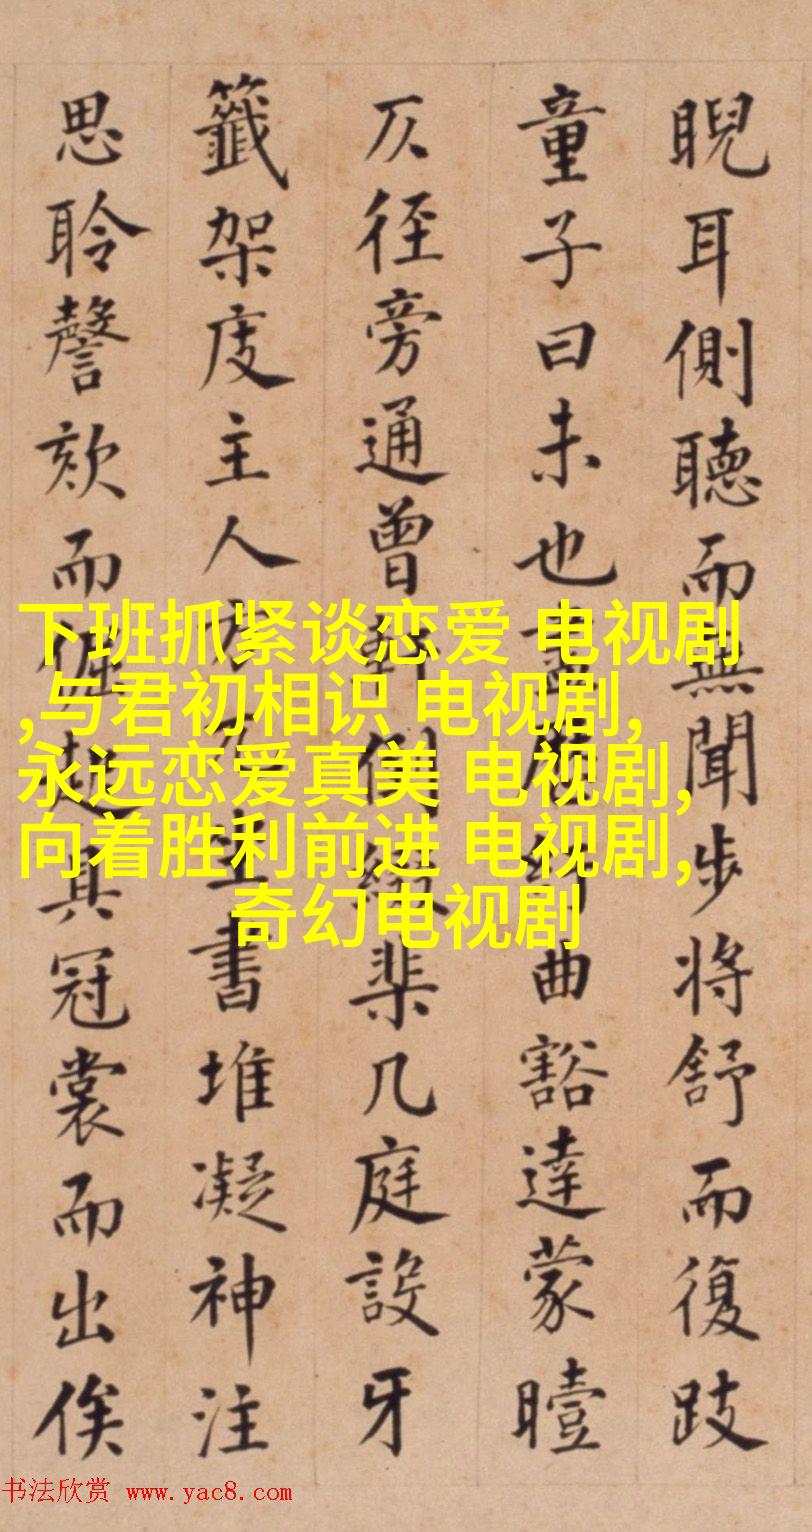 睨耳側聽而無聞步將舒而復跂
童子曰未也居曲豁達蒙曀
仄徑旁通曾側棐几庭設牙
籤架庋主人坐書堆凝神注
思聆謦欬而起具冠裳而出俟
下班抓紧谈恋爱 电视剧
,与君初相识 电视剧,
永远恋爱真美 电视剧,
向着胜利前进 电视剧,
奇幻电视剧
书法欣赏 www.yac8.com